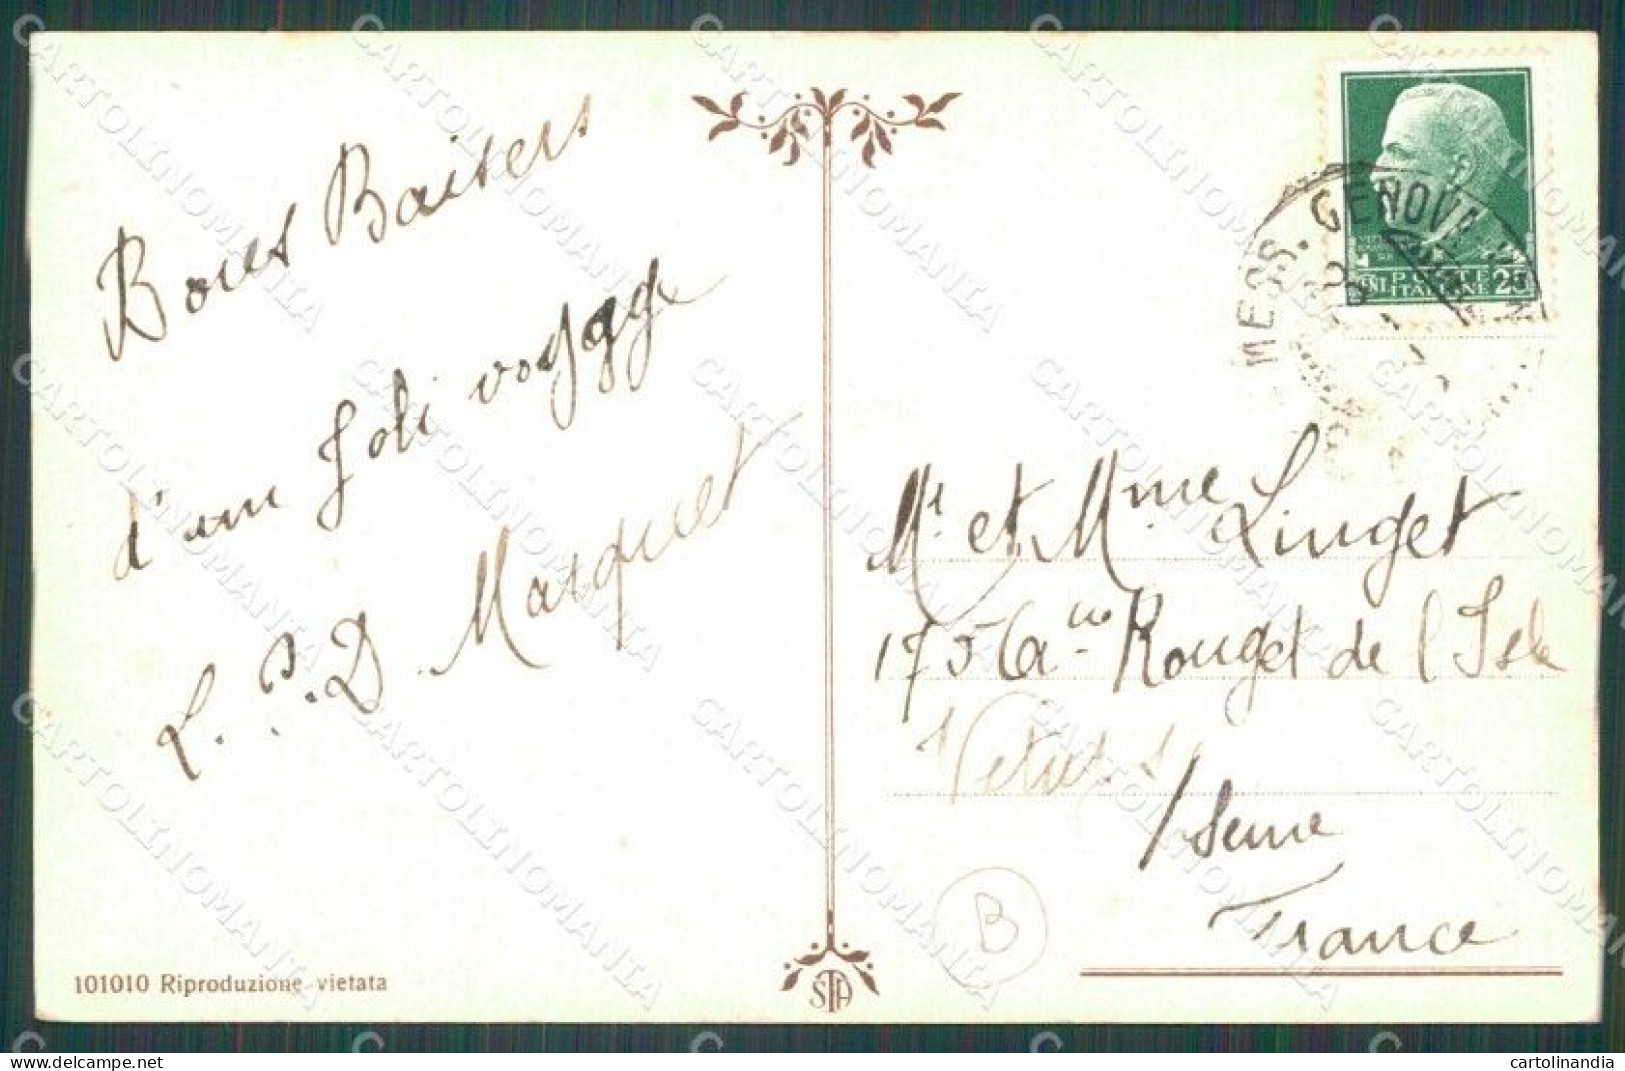 Bons Baisers
d'un Joli voyage
L. P. D. Marquet
POSTE
ITALIANE
CENT 25
MESS. GENOVA
Mr et Mme Linget
175 Rouget de l'Isle
/Seine
France
B
101010 Riproduzione vietata
STA
CARTOLINOMANIA
cartolinandia